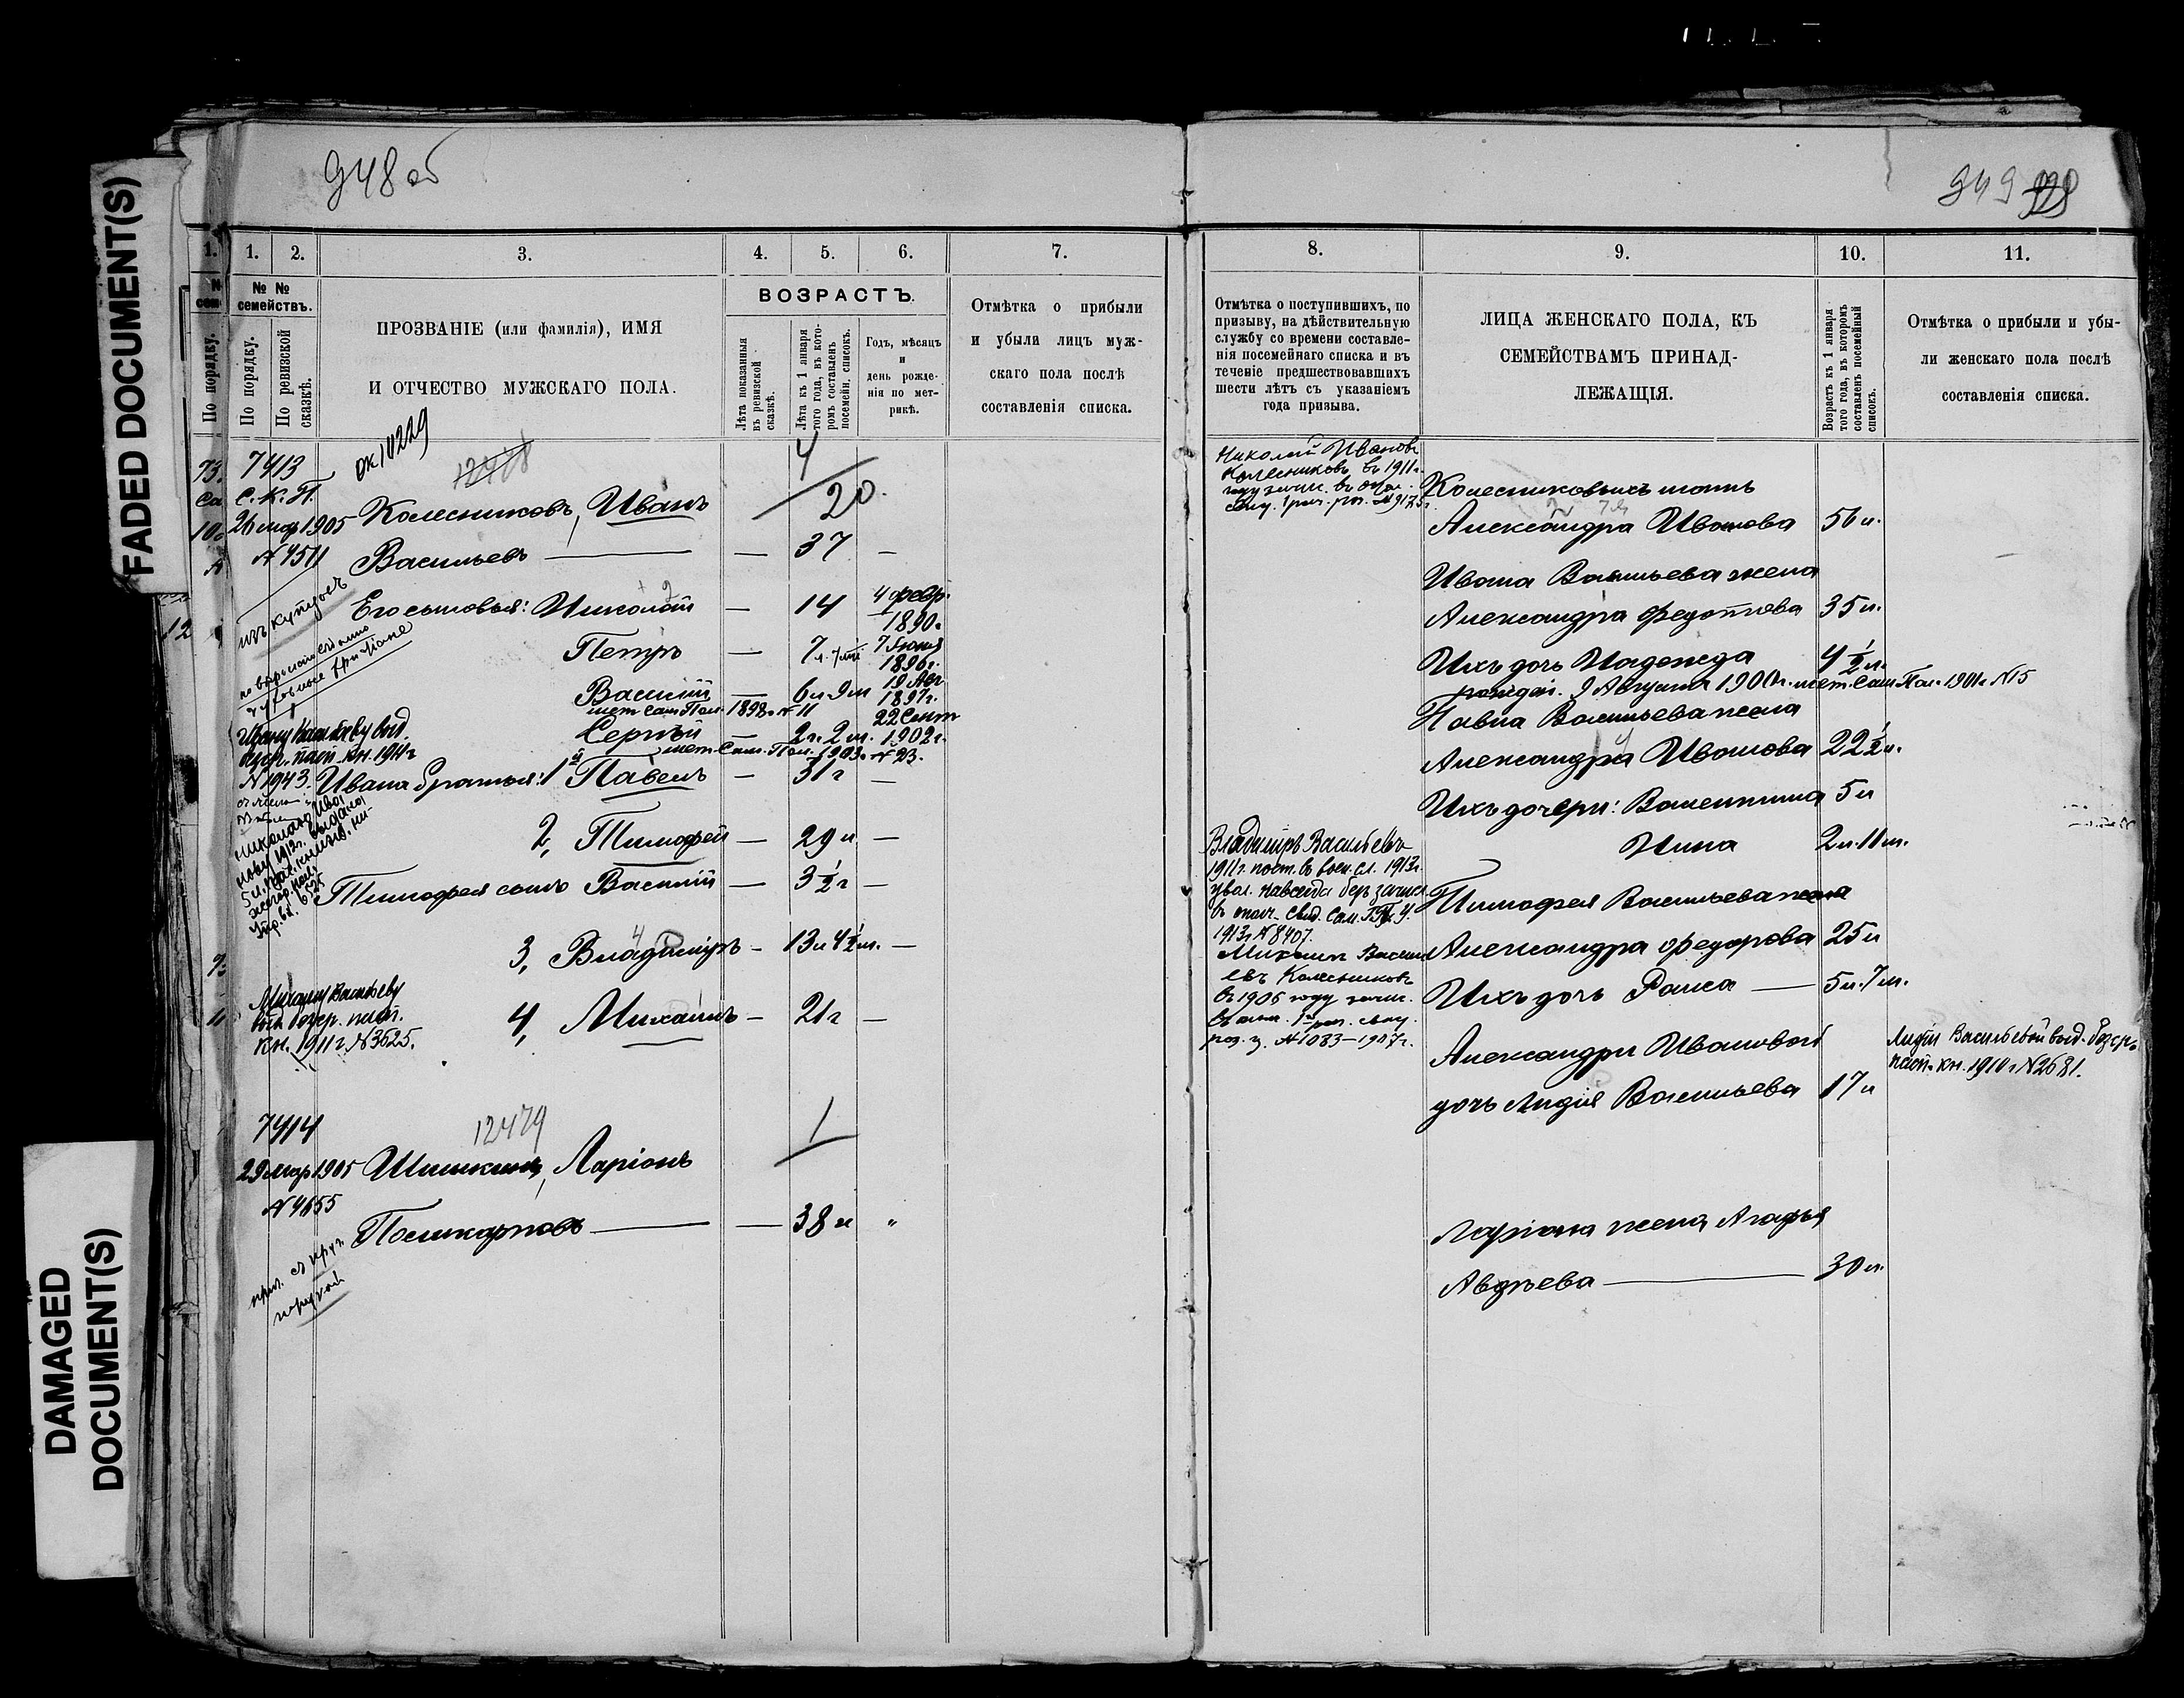 FADED DOCUMENT(S)
DAMAGED DOCUMENT(S)
948 об
1. 2. 3. 4. 5. 6. 7.
№ № семействъ.
По порядку.
По ревизской сказкѣ.
ПРОЗВАНІЕ (или фамилія), ИМЯ
И ОТЧЕСТВО МУЖСКАГО ПОЛА.
ВОЗРАСТЪ.
Лѣта показанныя въ ревизской сказкѣ.
Лѣта къ 1 января того года, въ которомъ составленъ посемейн. списокъ.
Годъ, мѣсяцъ и день рожденія по метрикѣ.
Отмѣтка о прибыли
и убыли лицъ муж-
скаго пола послѣ
составленія списка.
7413
12478
4
С. К. П.
20.
26 мар 1905 Колесниковъ, Иванъ
N 4511 Васильевъ — — 37 —
изъ купцовъ
Его сыновья: Николай — 14 4 февр. 1890 г.
Петръ — 7 л. 7 м. 7 Іюня 1896 г.
Василій — 6 л. 9 м. 19 Авг 1897 г.
мет. Сам. Пол. 1898 г. N 11
Сергѣй — 2 г. 2 м. 22 Сент 1902 г.
мет. Сам. Пол. 1903 г. N 23.
Ивану Васильеву выд.
безср. пасп. кн. 1911 г.
N 1943. Ивана братья: 1й Павелъ — 31 г —
2, Тимофей — 29 л —
Тимофея сынъ Василій — 3 ½ г —
3, Владиміръ — 13 л 4 ½ м. —
Михаилу Васильеву
выд. безср. пасп.
кн. 1911 г. N 3625.
4, Михаилъ — 21 г —
7414
12479
1
29 мар 1905 Шишкинъ, Ларіонъ
N 4655
Поликарповъ — — 38 л "
прил. съ круг.
порукой
949
8. 9. 10. 11.
Отмѣтка о поступившихъ, по
призыву, на дѣйствительную
службу со времени составле-
нія посемейнаго списка и въ
теченіе предшествовавшихъ
шести лѣтъ съ указаніемъ
года призыва.
ЛИЦА ЖЕНСКАГО ПОЛА, КЪ
СЕМЕЙСТВАМЪ ПРИНАД-
ЛЕЖАЩІЯ.
Возрастъ къ 1 января того года, въ которомъ составленъ посемейный списокъ.
Отмѣтка о прибыли и убы-
ли женскаго пола послѣ
составленія списка.
Николай Ивановъ
Колесниковъ въ 1911 г.
Колесниковыхъ мать
Александра Иванова 56 л.
Ивана Васильева жена
Александра Федотова 35 л.
Ихъ дочь Надежда 4 ½ л.
рожден. 9 Августа 1900 г. мет. Сам. Пол. 1901 г. N 15
Павла Васильева жена
Александра Иванова 22 ½ л.
Ихъ дочери: Валентина 5 л
Нина 2 л. 11 м.
Владиміръ Васильевъ
1911 г. пост. въ воен. сл. 1913 г.
увол. навсегда безъ зачисл.
1913 г. N 8407.
Тимофея Васильева жена
Александра Федорова 25 л
Ихъ дочь Раиса — 5 л. 7 м.
Михаилъ Василь
евъ Колесниковъ
въ 1905 году зачис.
N 1083—1907 г.
Александры Ивановой
дочь Лидія Васильева 17 л
Лидіи Васильевой выд. безср.
пасп. кн. 1910 г. N 2681.
Ларіона жена Агафья
Авдѣева — 30 л.